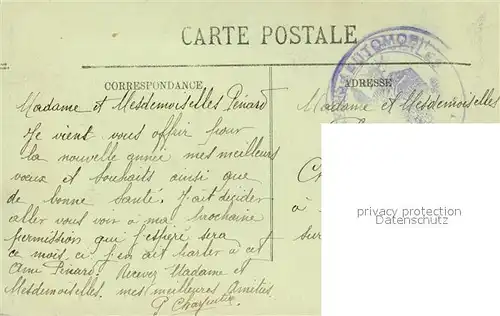 CARTE POSTALE
AUTOMOBILE
CORRESPONDANCE
ADRESSE
Madame et Mesdemoiselles Pinard
Je vient vous offir pour
la nouvelle année mes meilleurs
vœux et souhaits ainsi que
de bonne santé. J'ait décider
aller vous voir à ma prochaine
permission que j'espère sera
ce mois ci j'en ait parler à cet
Ami Pinard. Recevez Madame et
Mesdemoiselles. mes meilleures Amitiés
P. Charpentier
Madame et Mesdemoiselles
à
sur
privacy protection
Datenschutz